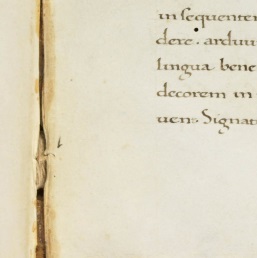 in sequenten
dere · arduu
lingua bene
decorem in
uen· Signat